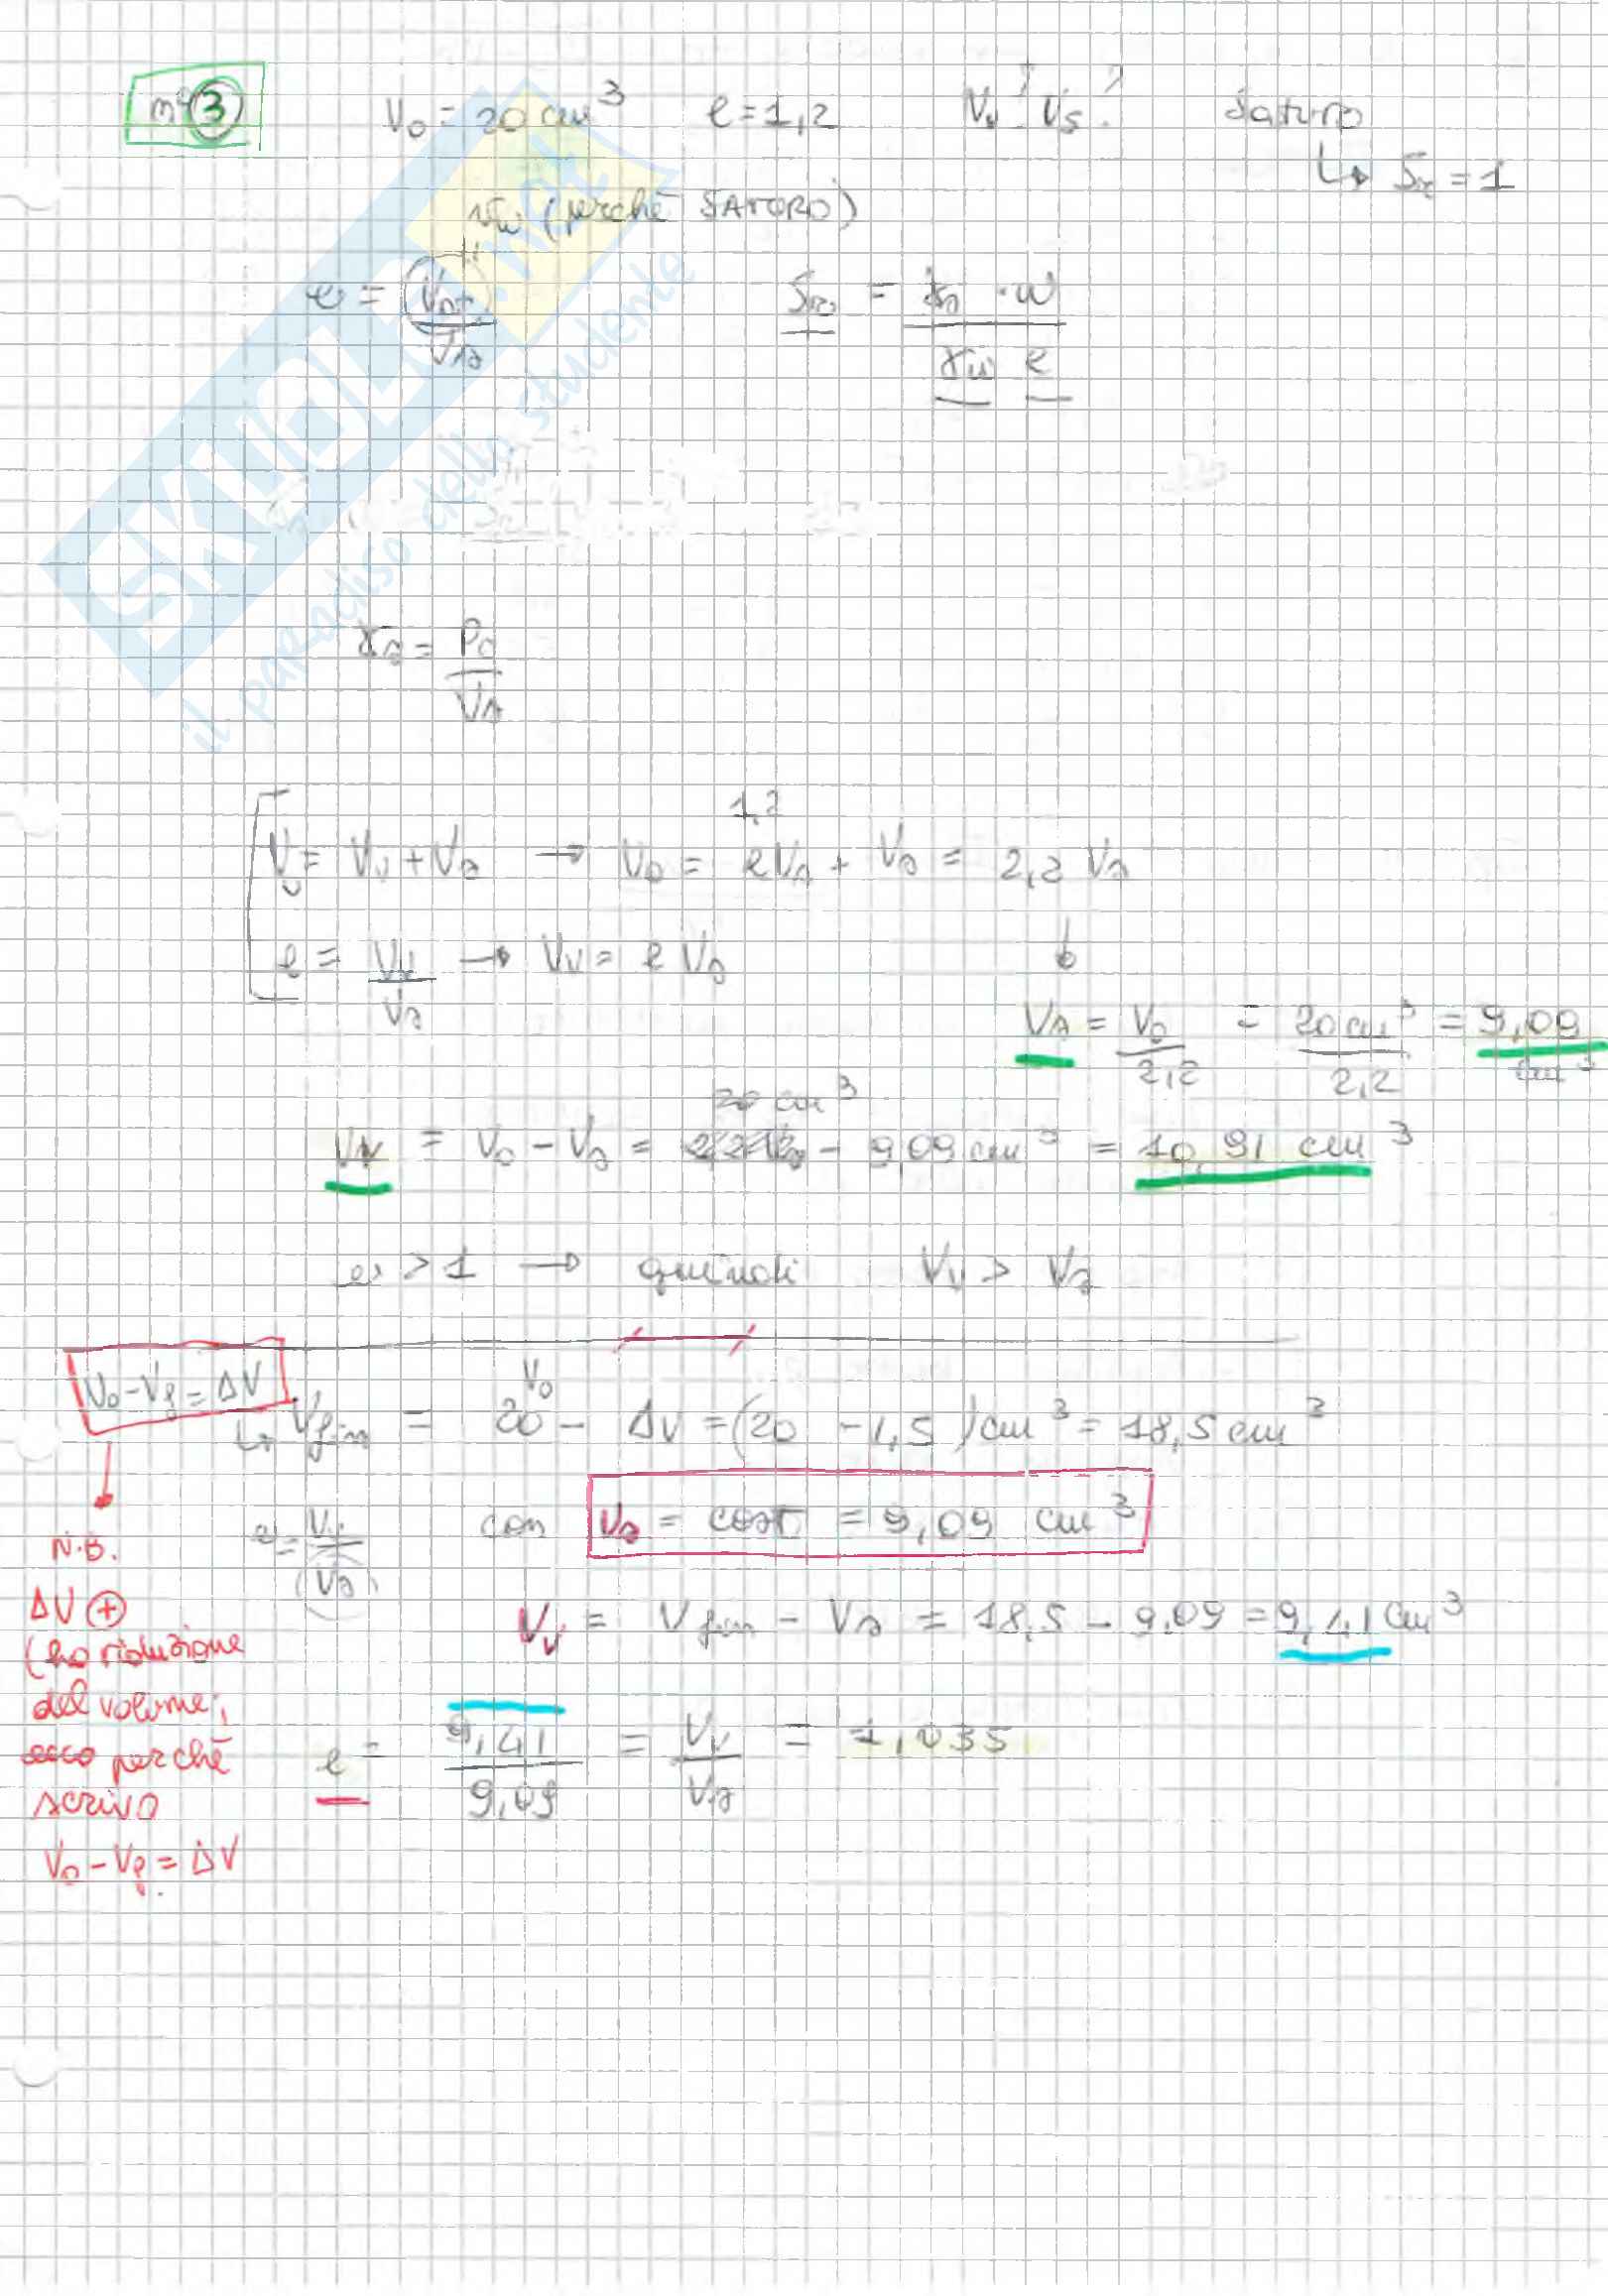 n° 3 V₀ = 20 cm³ e = 1,2 Vv? Vs? Saturo
↳ Sr = 1
Vw (perché SATURO)
e = Vv / Vs Sr = γs · w / γw e
γs = Ps / Vs
1,2
V₀ = Vv + Vs → V₀ = eVs + Vs = 2,2 Vs
e = Vv / Vs → Vv = e Vs ↓
Vs = V₀ / 2,2 = 20 cm³ / 2,2 = 9,09 cm³
20 cm³
Vv = V₀ - Vs = - 9,09 cm³ = 10,91 cm³
e > 1 → quindi Vv > Vs
V₀ - Vf = ΔV
V₀
↳ Vfin = 20 - ΔV = (20 - 1,5) cm³ = 18,5 cm³
e = Vv / Vs con Vs = cost = 9,09 cm³
Vv = Vfin - Vs = 18,5 - 9,09 = 9,41 cm³
e = 9,41 / 9,09 = Vv / Vs = 1,035
N.B.
ΔV ⊕
(ho riduzione
del volume;
ecco perché
scrivo
V₀ - Vf = ΔV
SKUOLA.net
il paradiso dello studente